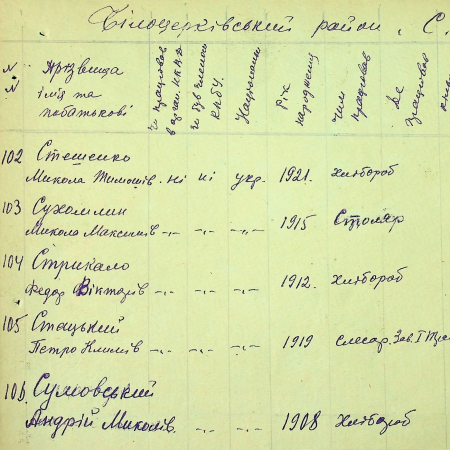 Білоцерківський район. С.
№ № Прізвища ім'я та побатькові
Чи працював в орган. Н.К.В.Д.
Чи був членом КПбУ.
Рік народження
Чим працював
Де
102 Стешенко
Микола Тимошів. ні ні укр. 1921. Хлібороб
103 Сухомлин
Микола Максимів -"- -"- -"- 1915 Столяр
104 Стрикало
Федор Вікторів -"- -"- -"- 1912. Хлібороб
105 Стацький
Петро Климів -"- -"- -"- 1919 Слесар. Зав.
106 Сумовський
Андрій Миколів. -"- -"- 1908 Хлібороб